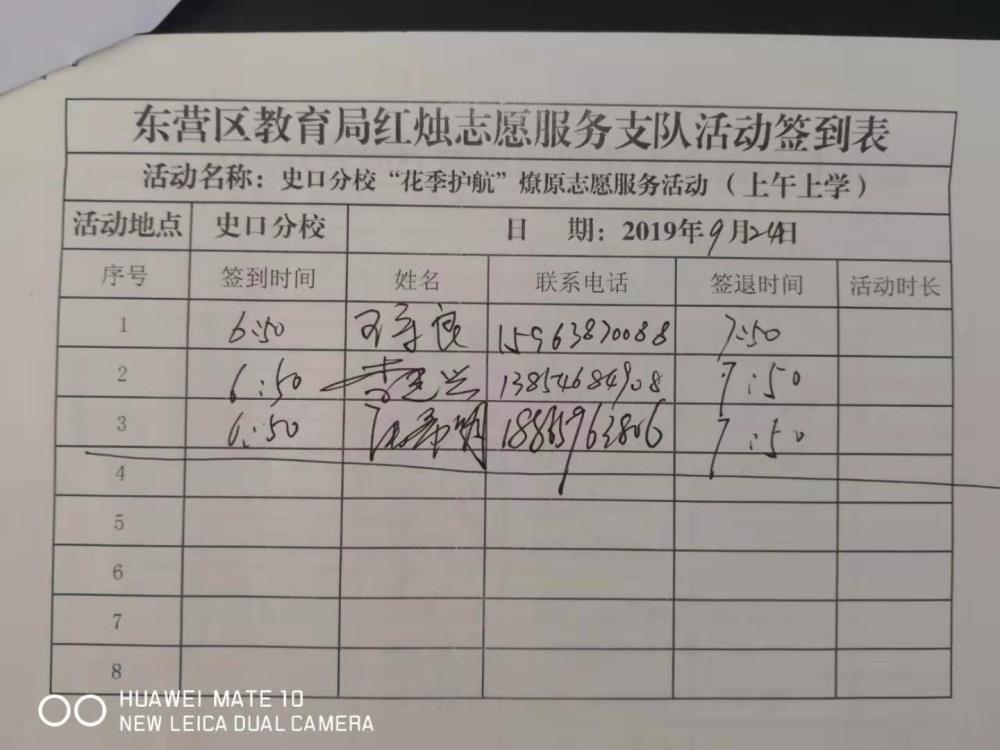 东营区教育局红烛志愿服务支队活动签到表
活动名称：史口分校“花季护航”燎原志愿服务活动（上午上学）
活动地点 史口分校 日 期：2019年9月24日
序号 签到时间 姓名 联系电话 签退时间 活动时长
1 6:50 15963870088 7:50
2 6:50 李建兴 13854684908 7:50
3 6:50 7:50
4
5
6
7
8
HUAWEI MATE 10
NEW LEICA DUAL CAMERA